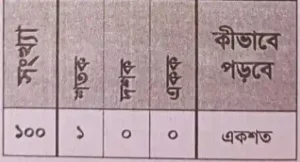 সংখ্যা শতক দশক একক কীভাবে পড়বে
১০০ ১ ০ ০ একশত